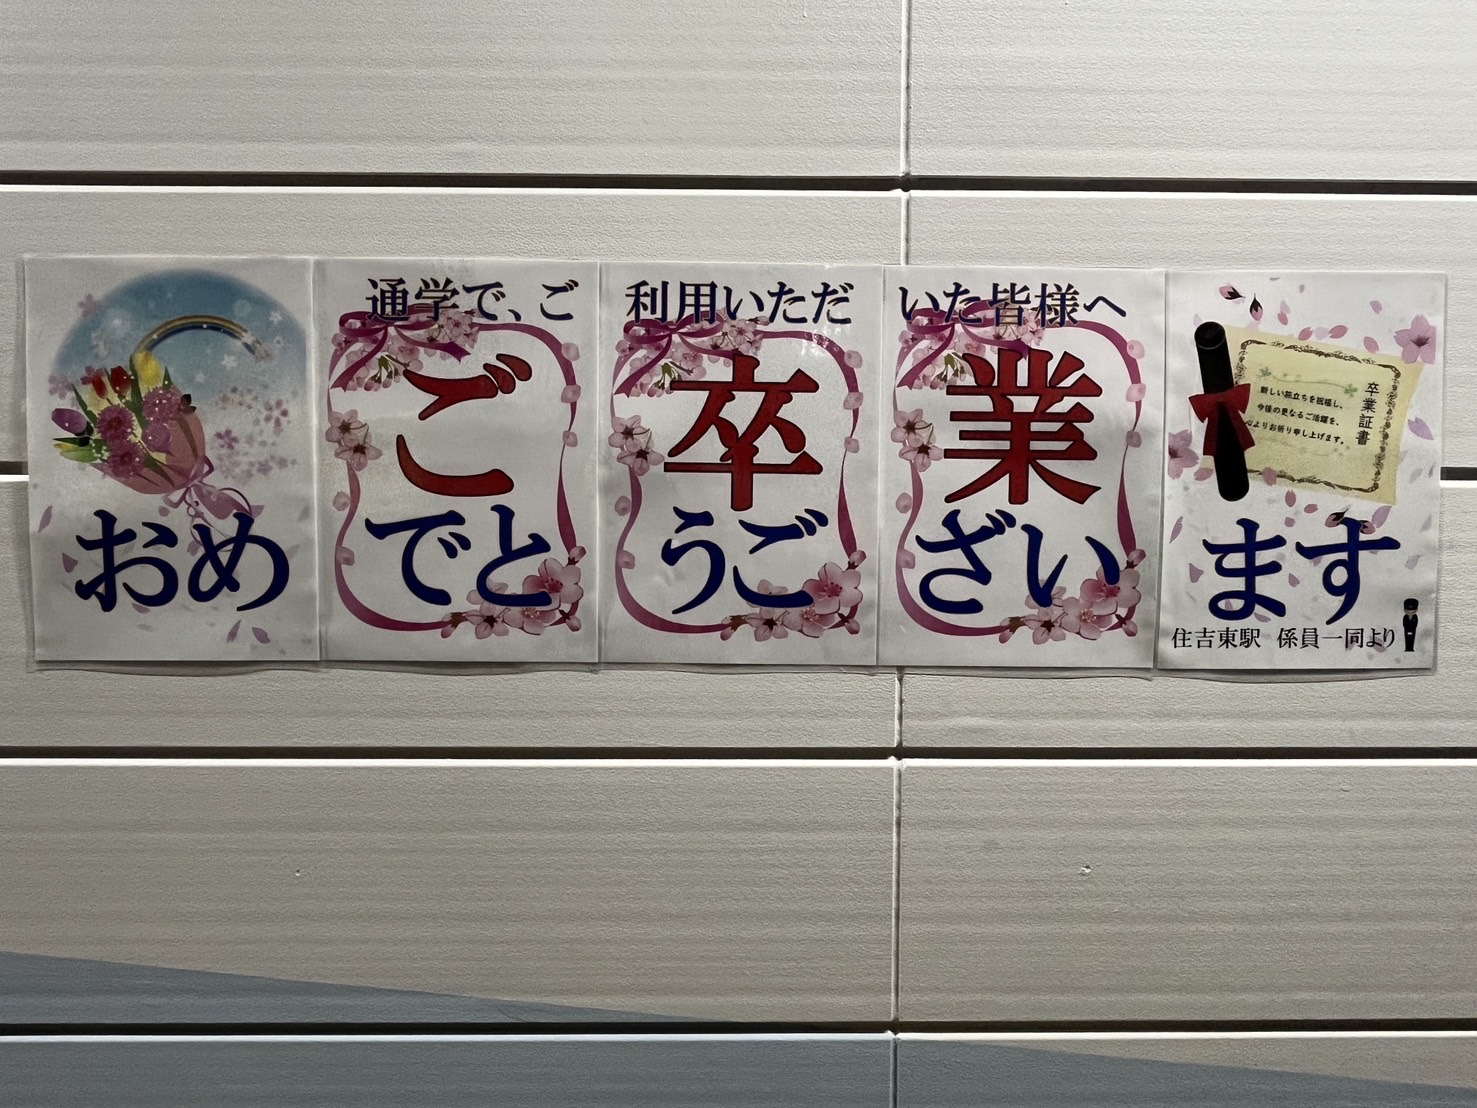 通学で、ご利用いただいた皆様へ
ご卒業
おめでとうございます
卒業証書
新しい旅立ちを祝福し、
今後の更なるご活躍を、
心よりお祈り申し上げます。
住吉東駅 係員一同より